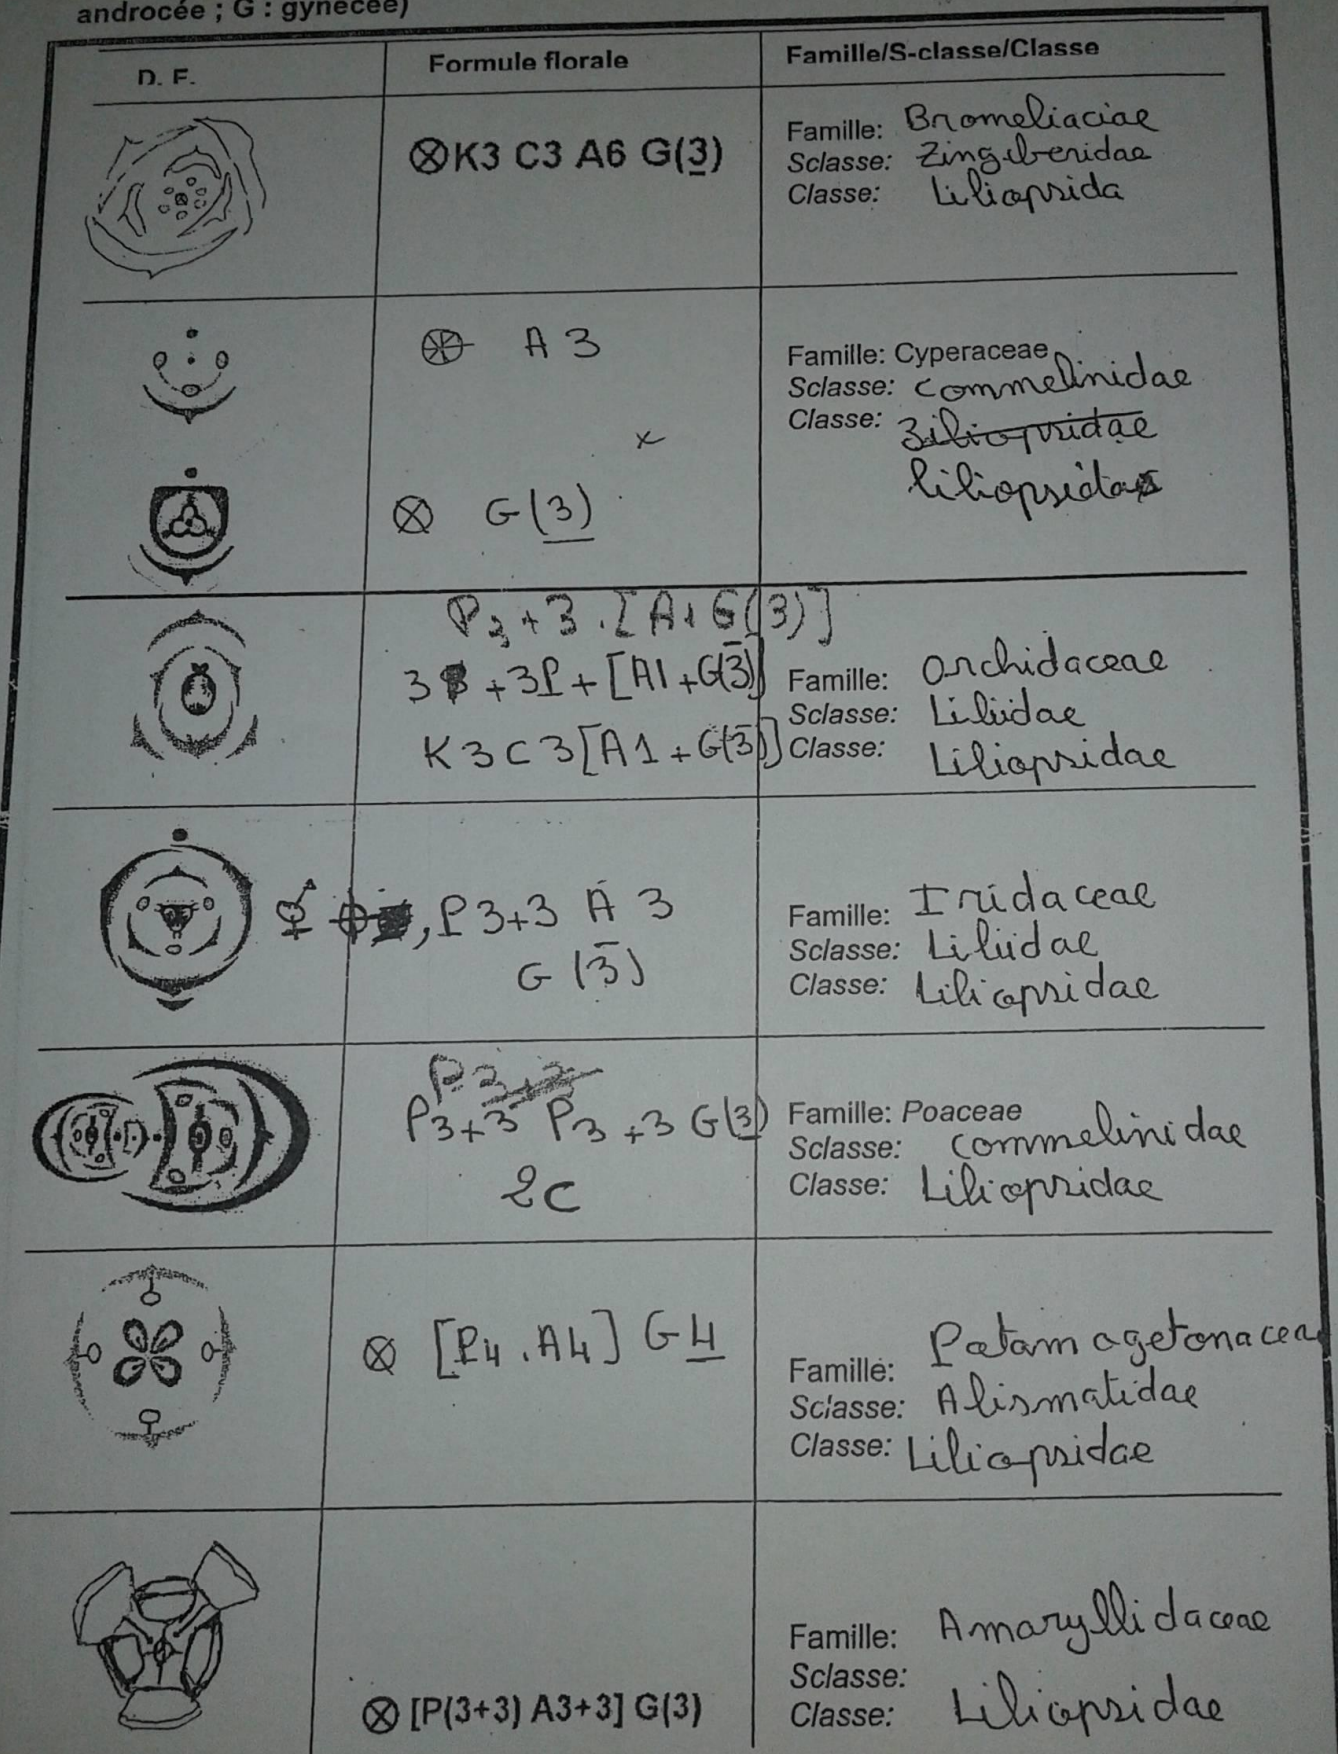 androcée ; G : gynécée)
D. F.
Formule florale
Famille/S-classe/Classe
⊗K3 C3 A6 G(3)
Famille: Bromeliaciae
Sclasse: Zingiberidae
Classe: Liliopsida
A 3
⊗ G(3)
Famille: Cyperaceae
Sclasse: Commelinidae
Classe: Ziliopsidae
liliopsida
P3+3.[A1 G(3)]
3 +3P+[A1+G(3)]
K3C3[A1+G(3)]
Famille: Orchidaceae
Sclasse: Liliidae
Classe: Liliopsidae
⚥ , P3+3 A 3
G (3)
Famille: Iridaceae
Sclasse: Liliidae
Classe: Liliopsidae
P3+3
P3+3 P3+3 G(3)
2C
Famille: Poaceae
Sclasse: Commelinidae
Classe: Liliopsidae
⊗ [P4.A4] G4
Famille: Potamagetonacea
Sclasse: Alismatidae
Classe: Liliopsidae
⊗ [P(3+3) A3+3] G(3)
Famille: Amaryllidaceae
Sclasse:
Classe: Liliopsidae